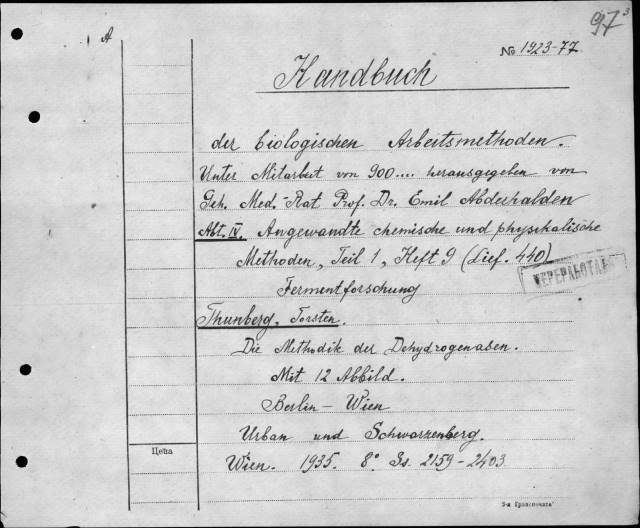 97³
A
№ 1923-77
Handbuch
der biologischen Arbeitsmethoden.
Unter Mitarbeit von 900.... herausgegeben von
Geh. Med.-Rat Prof. Dr. Emil Abderhalden
Abt. IV. Angewandte chemische und physikalische
Methoden, Teil 1, Heft 9 (Lief. 440)
Fermentforschung
Thunberg, Torsten.
Die Methodik der Dehydrogenasen.
Mit 12 Abbild.
Berlin – Wien
Urban und Schwarzenberg.
Цена
Wien. 1935. 8° Ss. 2159-2403